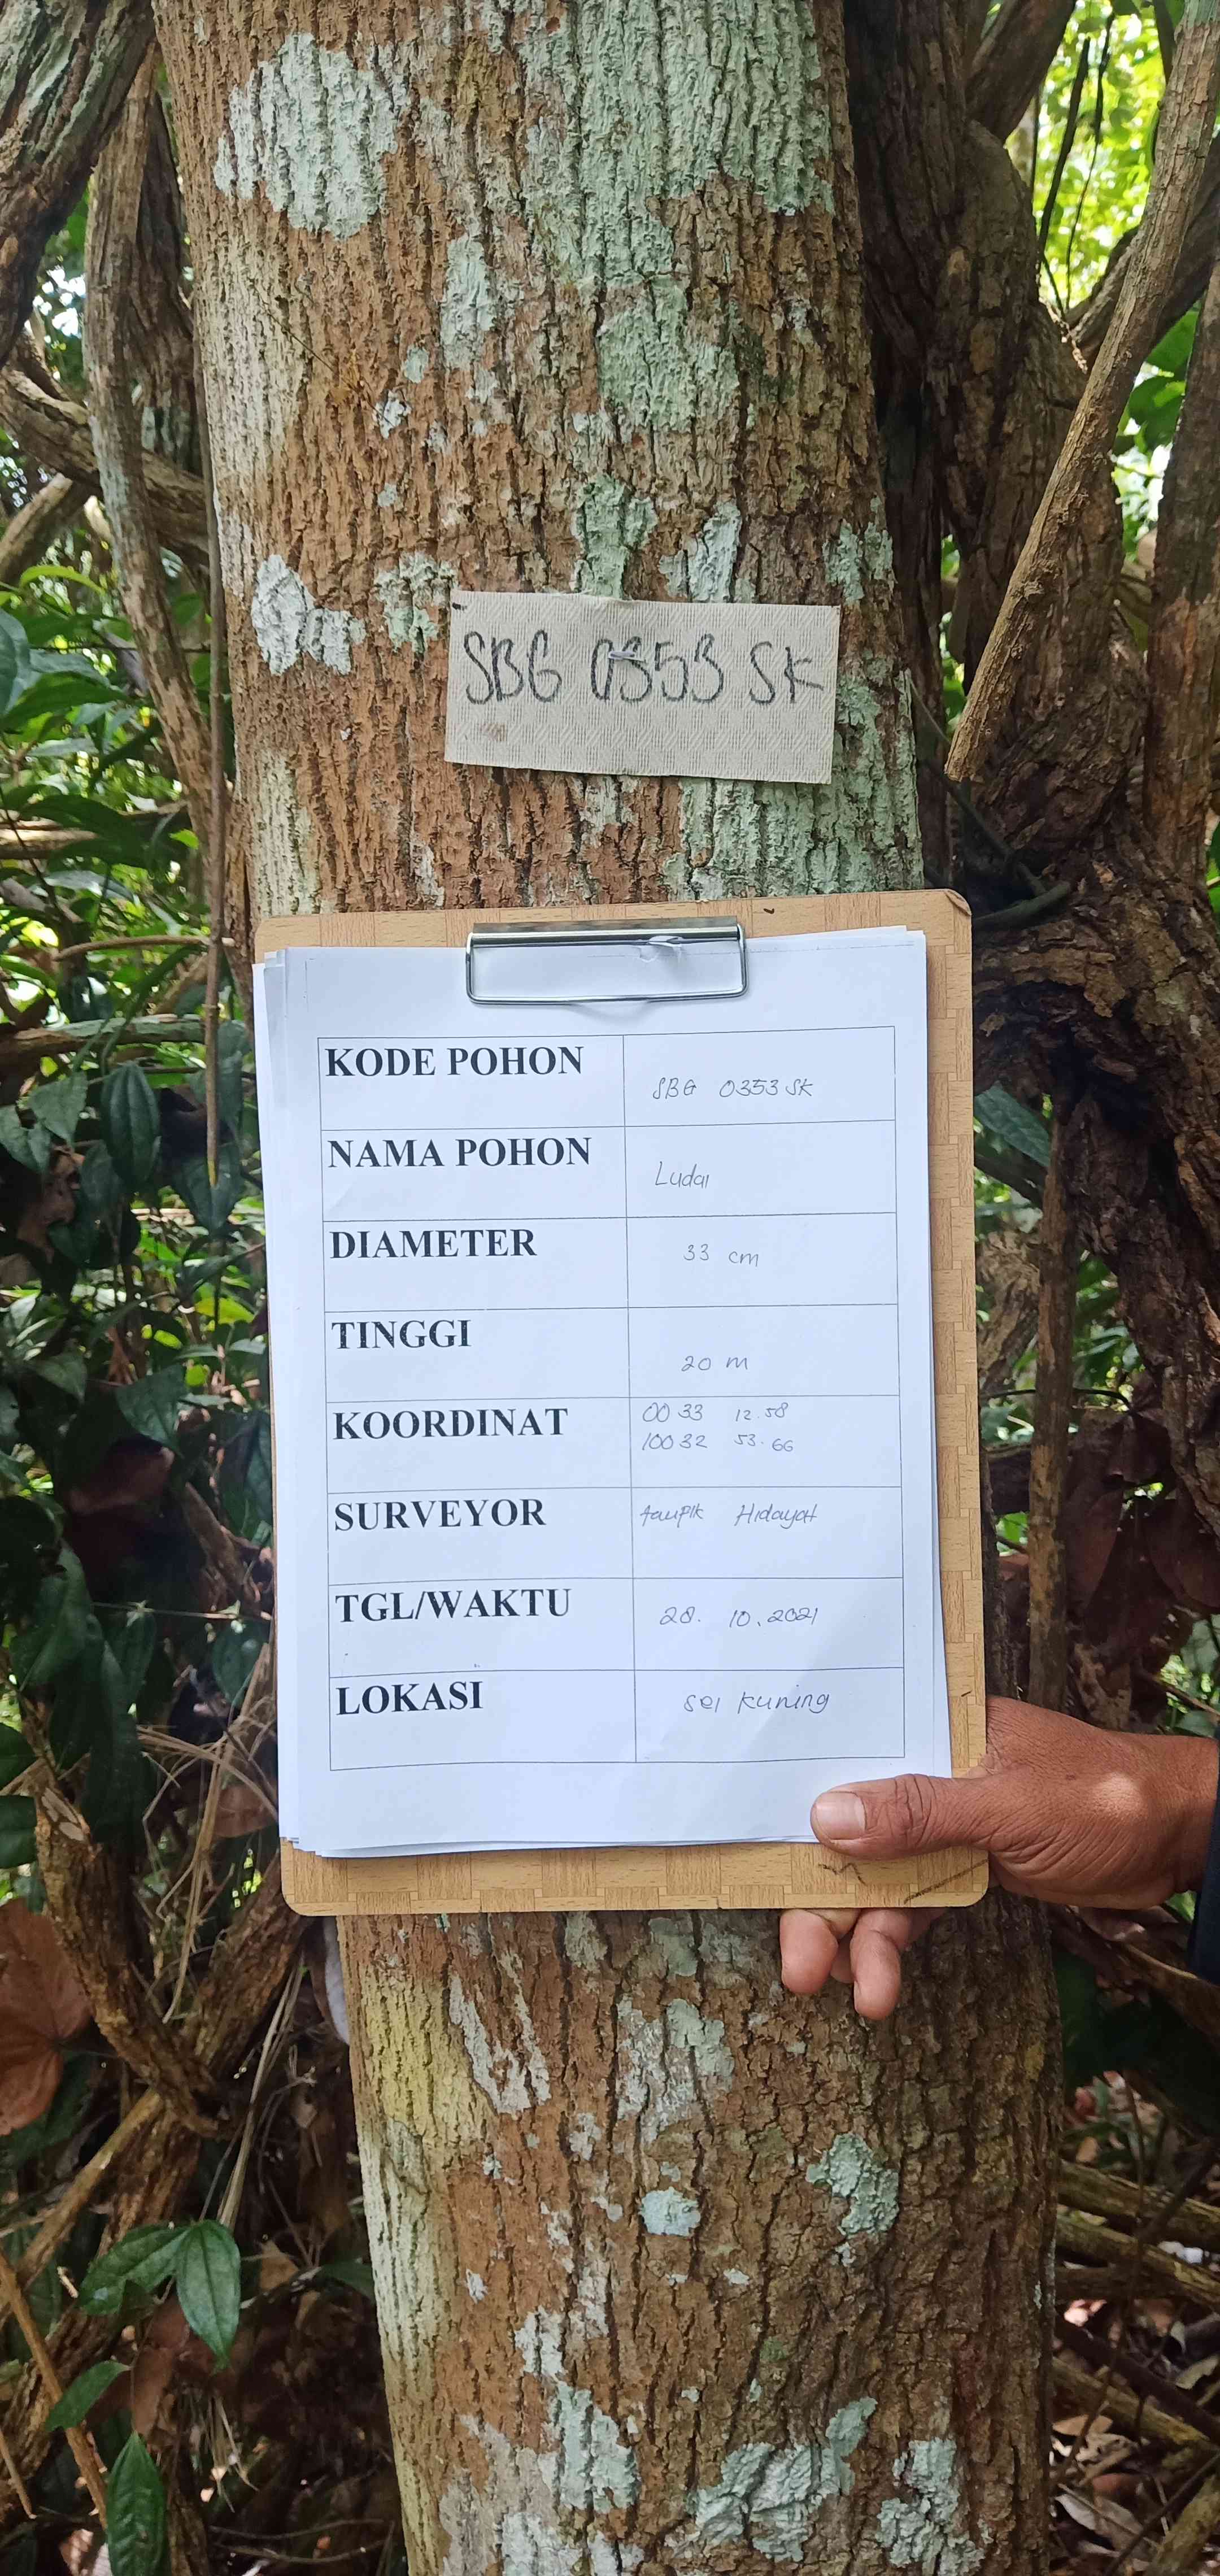 SBG 0353 SK
KODE POHON SBG 0353 SK
NAMA POHON Ludai
DIAMETER 33 cm
TINGGI 20 m
KOORDINAT 00 33 12.58
100 32 53.66
SURVEYOR taupik Hidayat
TGL/WAKTU 28. 10. 2021
LOKASI sei kuning